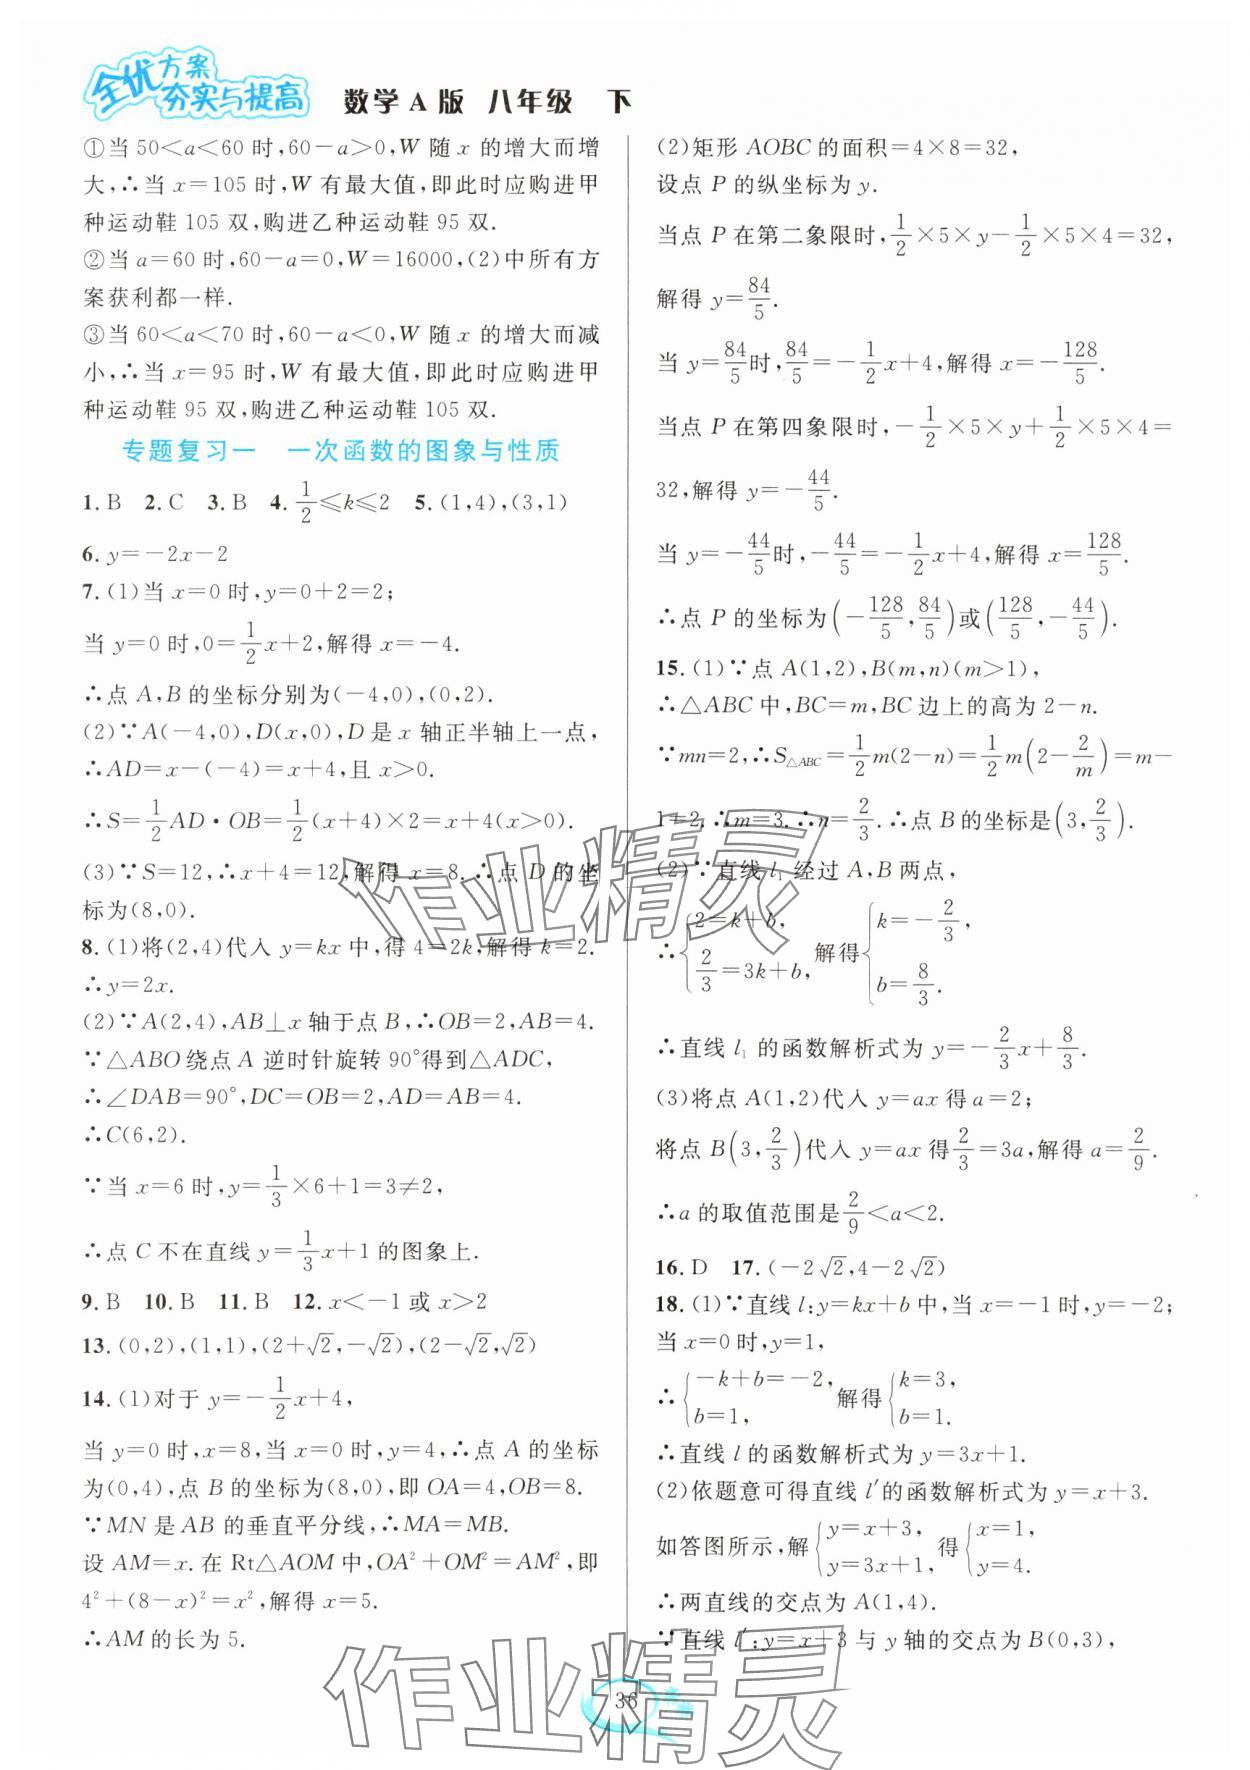 全优方案
夯实与提高
数学 A 版 八年级 下
①当 50<a<60 时,60-a>0,W 随 x 的增大而增
大,∴当 x=105 时,W 有最大值,即此时应购进甲
种运动鞋 105 双,购进乙种运动鞋 95 双.
②当 a=60 时,60-a=0,W=16000,(2)中所有方
案获利都一样.
③当 60<a<70 时,60-a<0,W 随 x 的增大而减
小,∴当 x=95 时,W 有最大值,即此时应购进甲
种运动鞋 95 双,购进乙种运动鞋 105 双.
专题复习一 一次函数的图象与性质
1. B 2. C 3. B 4. 1/2≤k≤2 5. (1,4),(3,1)
6. y=-2x-2
7. (1)当 x=0 时,y=0+2=2;
当 y=0 时,0=1/2x+2,解得 x=-4.
∴点 A,B 的坐标分别为(-4,0),(0,2).
(2)∵A(-4,0),D(x,0),D 是 x 轴正半轴上一点,
∴AD=x-(-4)=x+4,且 x>0.
∴S=1/2AD·OB=1/2(x+4)×2=x+4(x>0).
(3)∵S=12,∴x+4=12,解得 x=8.∴点 D 的坐
标为(8,0).
8. (1)将(2,4)代入 y=kx 中,得 4=2k,解得 k=2.
∴y=2x.
(2)∵A(2,4),AB⊥x 轴于点 B,∴OB=2,AB=4.
∵△ABO 绕点 A 逆时针旋转 90°得到△ADC,
∴∠DAB=90°,DC=OB=2,AD=AB=4.
∴C(6,2).
∵当 x=6 时,y=1/3×6+1=3≠2,
∴点 C 不在直线 y=1/3x+1 的图象上.
9. B 10. B 11. B 12. x<-1 或 x>2
13. (0,2),(1,1),(2+√2,-√2),(2-√2,√2)
14. (1)对于 y=-1/2x+4,
当 y=0 时,x=8,当 x=0 时,y=4,∴点 A 的坐标
为(0,4),点 B 的坐标为(8,0),即 OA=4,OB=8.
∵MN 是 AB 的垂直平分线,∴MA=MB.
设 AM=x.在 Rt△AOM 中,OA²+OM²=AM²,即
4²+(8-x)²=x²,解得 x=5.
∴AM 的长为 5.
(2)矩形 AOBC 的面积=4×8=32,
设点 P 的纵坐标为 y.
当点 P 在第二象限时,1/2×5×y-1/2×5×4=32,
解得 y=84/5.
当 y=84/5时,84/5=-1/2x+4,解得 x=-128/5.
当点 P 在第四象限时,-1/2×5×y+1/2×5×4=
32,解得 y=-44/5.
当 y=-44/5时,-44/5=-1/2x+4,解得 x=128/5.
∴点 P 的坐标为(-128/5,84/5)或(128/5,-44/5).
15. (1)∵点 A(1,2),B(m,n)(m>1),
∴△ABC 中,BC=m,BC 边上的高为 2-n.
∵mn=2,∴S△ABC=1/2m(2-n)=1/2m(2-2/m)=m-
1=2.∴m=3.∴n=2/3.∴点 B 的坐标是(3,2/3).
(2)∵直线 l₁ 经过 A,B 两点,
∴{2=k+b, 2/3=3k+b, 解得{k=-2/3, b=8/3.
∴直线 l₁ 的函数解析式为 y=-2/3x+8/3.
(3)将点 A(1,2)代入 y=ax 得 a=2;
将点 B(3,2/3)代入 y=ax 得2/3=3a,解得 a=2/9.
∴a 的取值范围是2/9<a<2.
16. D 17. (-2√2,4-2√2)
18. (1)∵直线 l:y=kx+b 中,当 x=-1 时,y=-2;
当 x=0 时,y=1,
∴{-k+b=-2, b=1, 解得{k=3, b=1.
∴直线 l 的函数解析式为 y=3x+1.
(2)依题意可得直线 l′的函数解析式为 y=x+3.
如答图所示,解{y=x+3, y=3x+1, 得{x=1, y=4.
∴两直线的交点为 A(1,4).
∵直线 l′:y=x+3 与 y 轴的交点为 B(0,3),
作业精灵
作业精灵
36